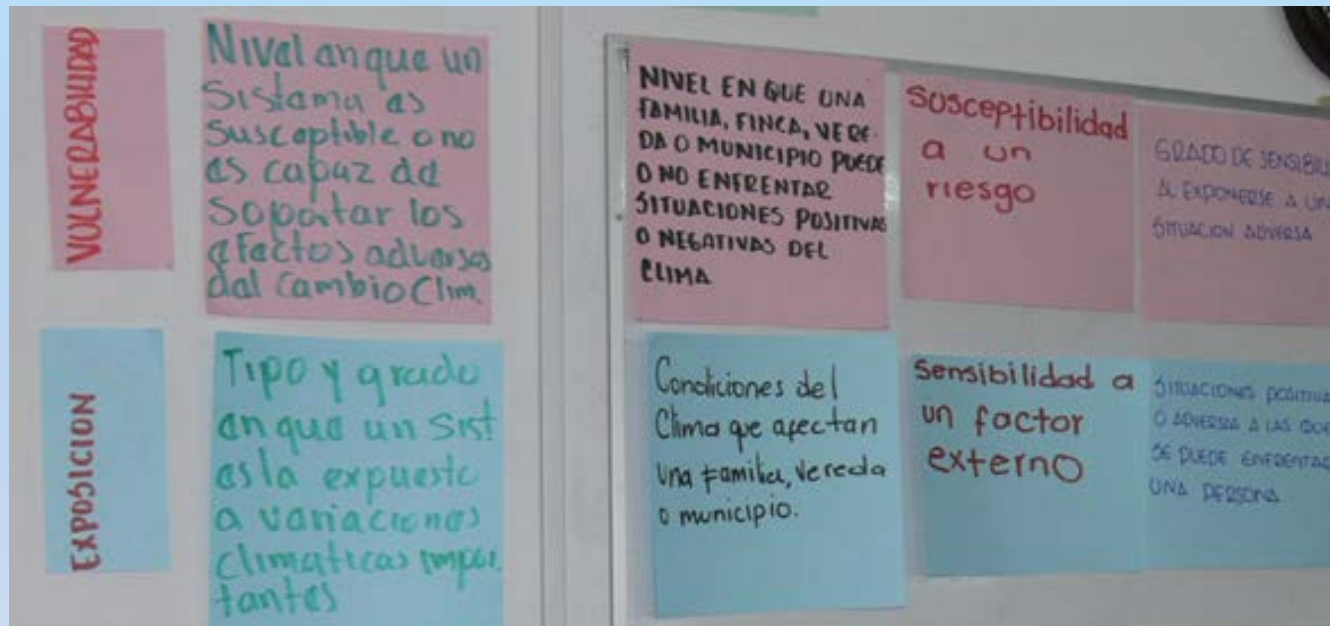 VULNERABILIDAD
Nivel en que un
Sistema es
Susceptible o no
es capaz de
Soportar los
efectos adversos
del Cambio Clim.
NIVEL EN QUE UNA
FAMILIA, FINCA, VERE-
DA O MUNICIPIO PUEDE
O NO ENFRENTAR
SITUACIONES POSITIVAS
O NEGATIVAS DEL
CLIMA
Susceptibilidad
a un
riesgo
GRADO DE SENSIBILI
AL EXPONERSE A UNA
SITUACION ADVERSA
EXPOSICION
Tipo y grado
en que un Sist
esta expuesto
a variaciones
Climaticas impor.
tantes
Condiciones del
Clima que afectan
una familia, vereda
o municipio.
Sensibilidad a
un factor
externo
SITUACIONES POSITIVA
O ADVERSA A LAS QUE
SE PUEDE ENFRENTAR
UNA PERSONA